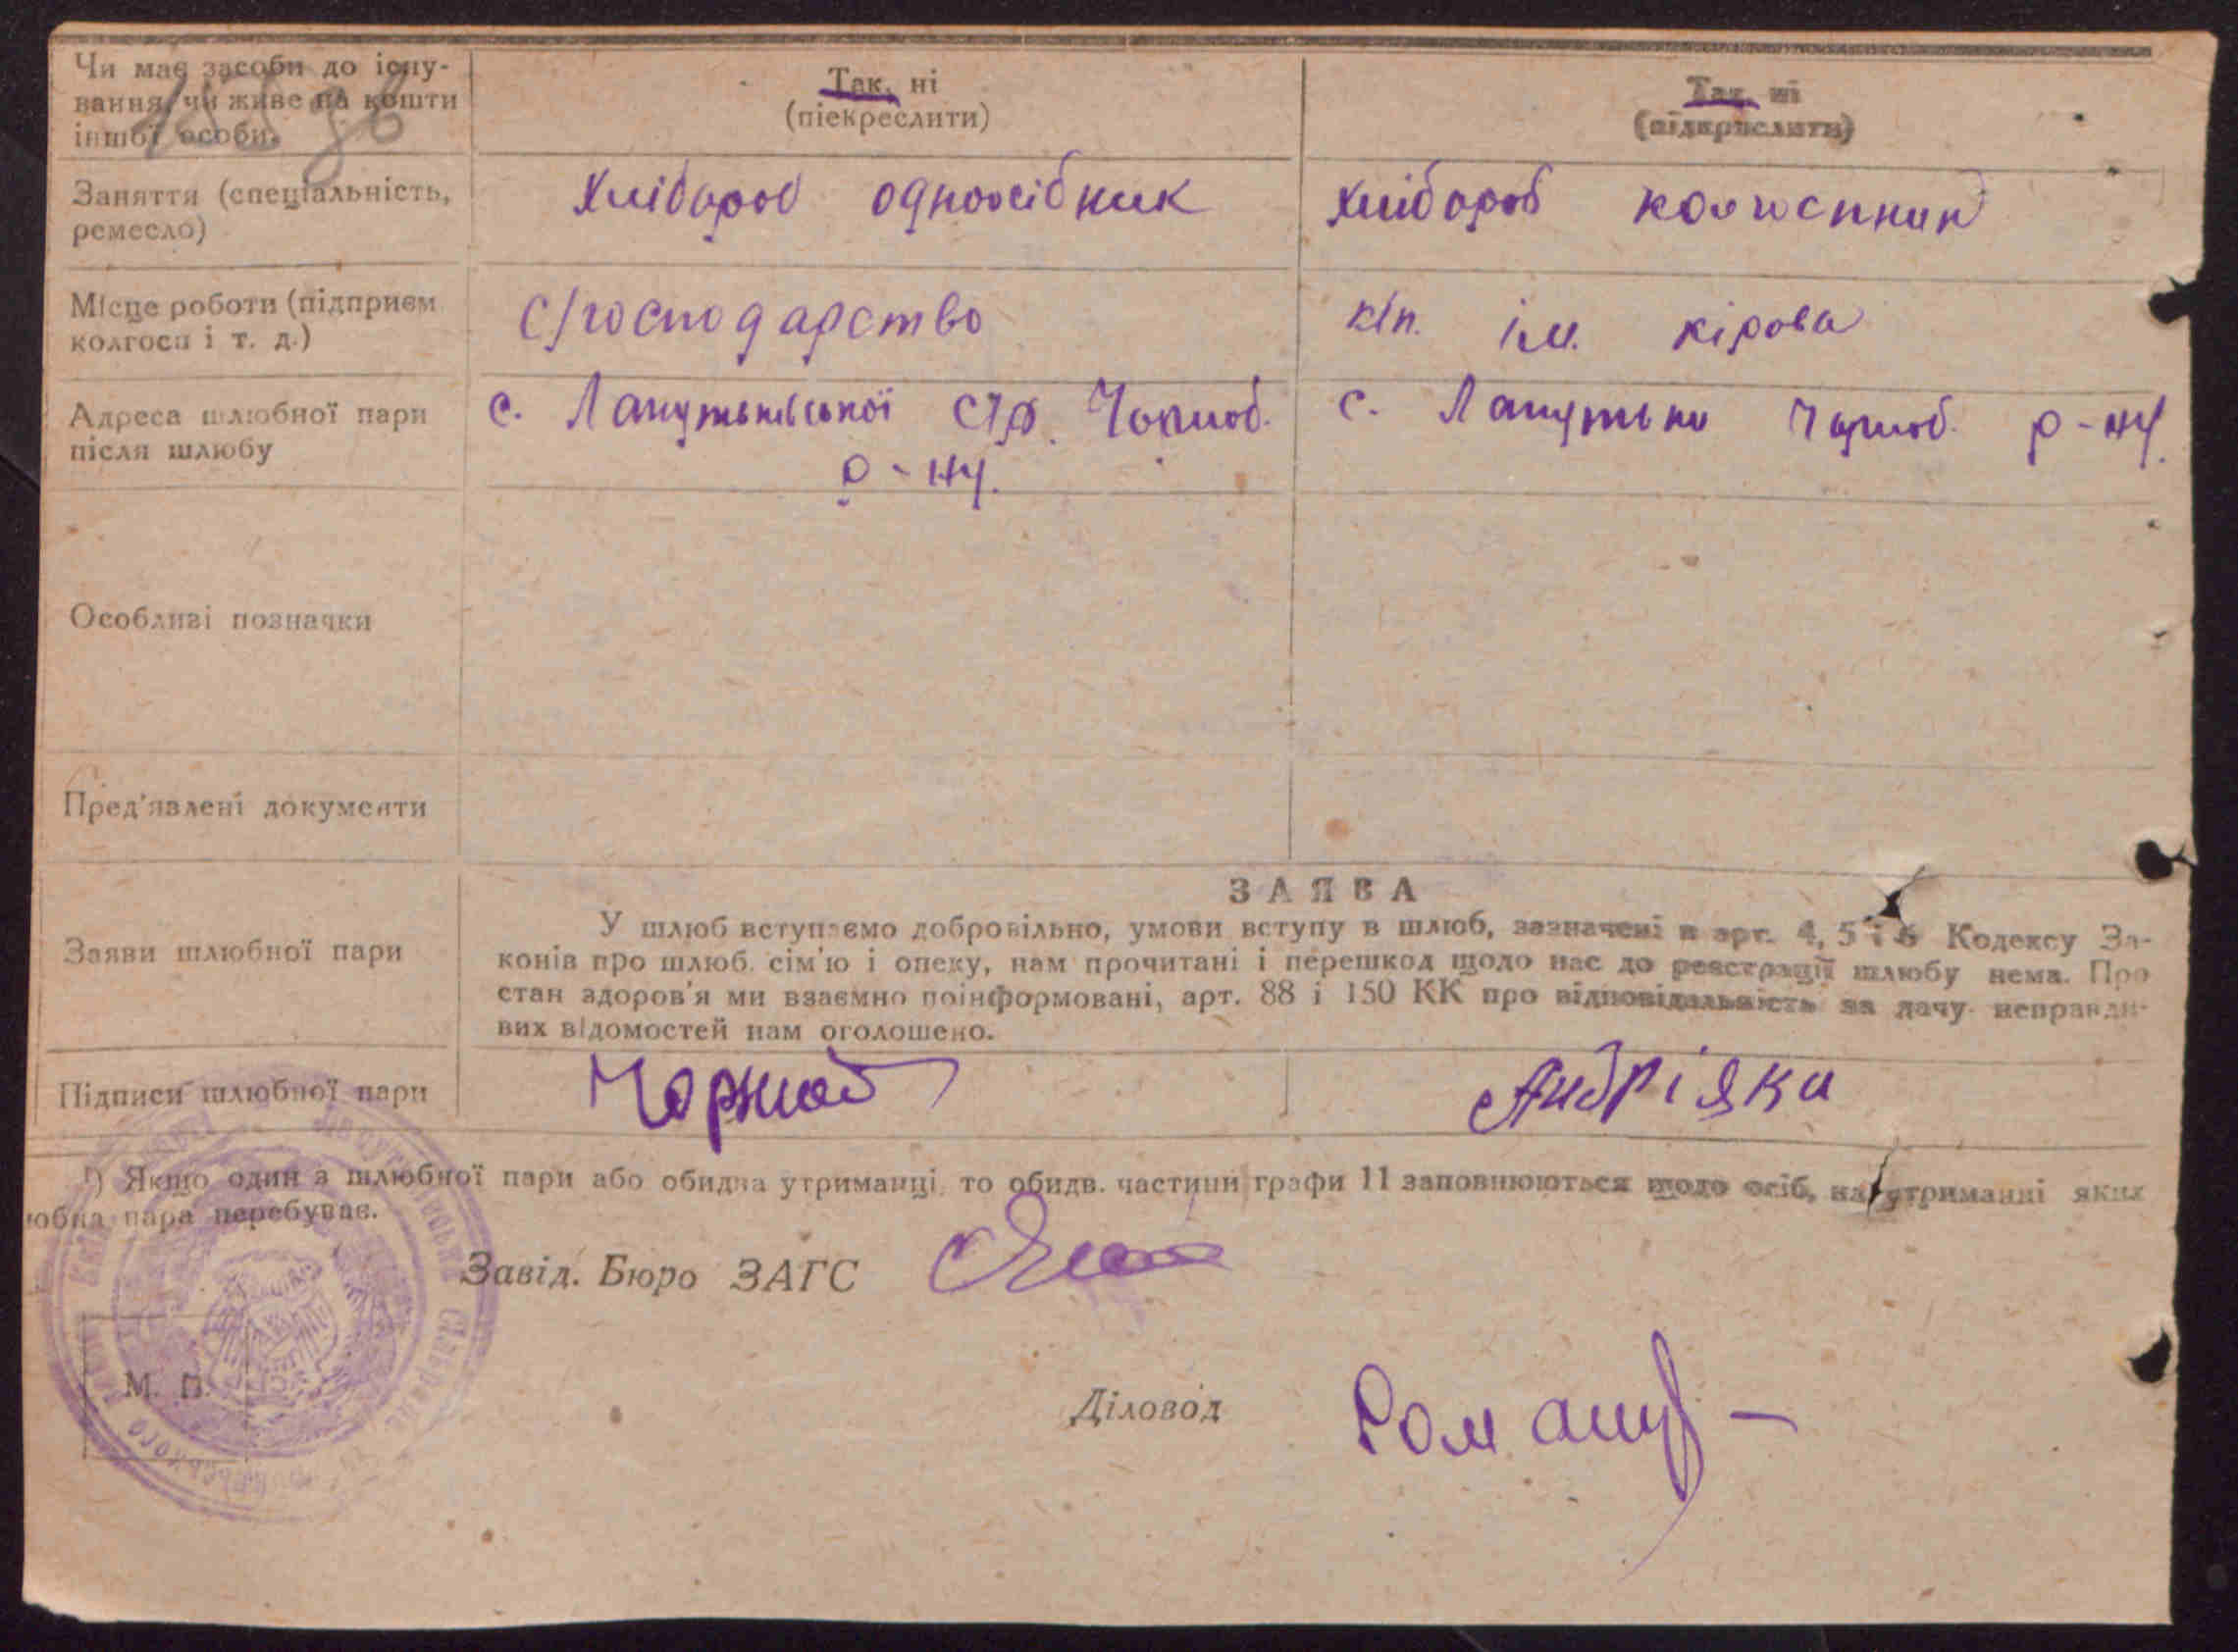 Чи має засоби до існу-
вання, чи живе на кошти
іншої особи.
Так, ні
(піекреслити)
Так, ні
(підкреслити)
Заняття (спеціальність,
ремесло)
Хлібороб одноосібник
Хлібороб колгоспник
Місце роботи (підприєм
колгосп і т. д.)
С/господарство
к/п. ім. кірова
Адреса шлюбної пари
після шлюбу
с. Лапутьківської с/р. Чорноб.
р-ну.
с. Лапутьки Чорноб. р-ну.
Особливі позначки
Пред'явлені документи
Заяви шлюбної пари
ЗАЯВА
У шлюб вступаємо добровільно, умови вступу в шлюб, зазначені в арт. 4, 5 і 6 Кодексу За-
конів про шлюб. сім'ю і опеку, нам прочитані і перешкод щодо нас до реєстрації шлюбу нема. Про
стан здоров'я ми взаємно поінформовані, арт. 88 і 150 КК про відповідальність за дачу неправди-
вих відомостей нам оголошено.
Підписи шлюбної пари
Андріяка
¹) Якщо один з шлюбної пари або обидва утриманці, то обидв. частини графи 11 заповнюються щодо осіб, на утриманні яких
юбна пара перебуває.
Завід. Бюро ЗАГС
М. П.
Діловод